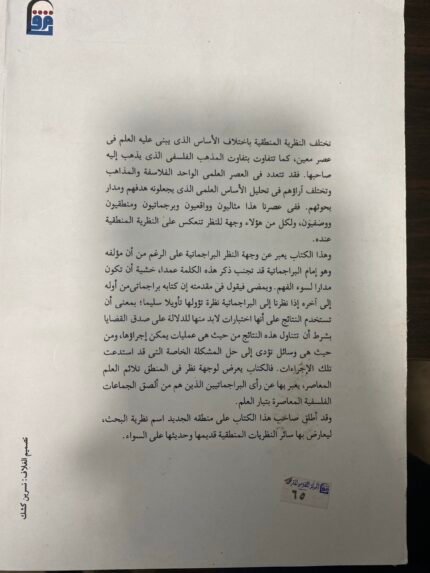 تختلف النظرية المنطقية باختلاف الأساس الذى يبنى عليه العلم فى
عصر معين، كما تتفاوت بتفاوت المذهب الفلسفى الذى يذهب إليه
صاحبها. فقد تتعدد فى العصر العلمى الواحد الفلاسفة والمذاهب
وتختلف آراؤهم فى تحليل الأساس العلمى الذى يجعلونه هدفهم ومدار
بحوثهم. ففى عصرنا هذا مثاليون وواقعيون وبرجماتيون ومنطقيون
ووضعيون، ولكل من هؤلاء وجهة للنظر تنعكس على النظرية المنطقية
عنده.
وهذا الكتاب يعبر عن وجهة النظر البراجماتية على الرغم من أن مؤلفه
وهو إمام البراجماتية قد تجنب ذكر هذه الكلمة عمدا، خشية أن تكون
مدارا لسوء الفهم. ويمضى فيقول فى مقدمته إن كتابه براجماتى من أوله
إلى آخره إذا نظرنا إلى البراجماتية نظرة تؤولها تأويلا سليما؛ بمعنى أن
تستخدم النتائج على أنها اختبارات لابد منها للدلالة على صدق القضايا
بشرط أن تتناول هذه النتائج من حيث هى عمليات يمكن إجراؤها، ومن
حيث هى وسائل تؤدى إلى حل المشكلة الخاصة التى قد استدعت
تلك الإجراءات. فالكتاب يعرض لوجهة نظر فى المنطق تلائم العلم
المعاصر، يعبر بها عن رأى البراجماتيين الذين هم من ألصق الجماعات
الفلسفية المعاصرة بتيار العلم.
وقد أطلق صاحب هذا الكتاب على منطقه الجديد اسم نظرية البحث،
ليعارض بها سائر النظريات المنطقية قديمها وحديثها على السواء.
تصميم الغلاف: نسرين كشك
٦٥